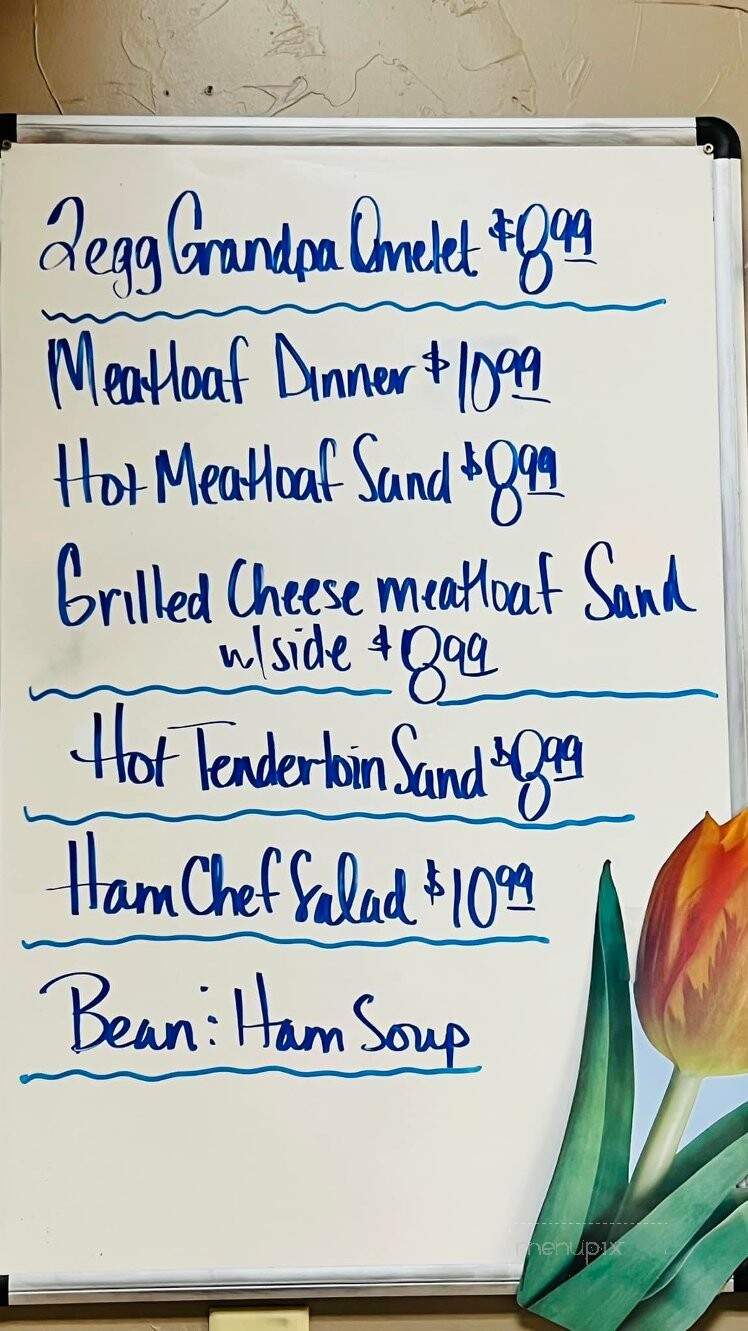 2egg Grandpa Omelet $8.99
Meatloaf Dinner $10.99
Hot Meatloaf Sand $8.99
Grilled Cheese meatloaf Sand
w/side $8.99
Hot Tenderloin Sand $8.99
Ham Chef Salad $10.99
Bean : Ham Soup
menupix